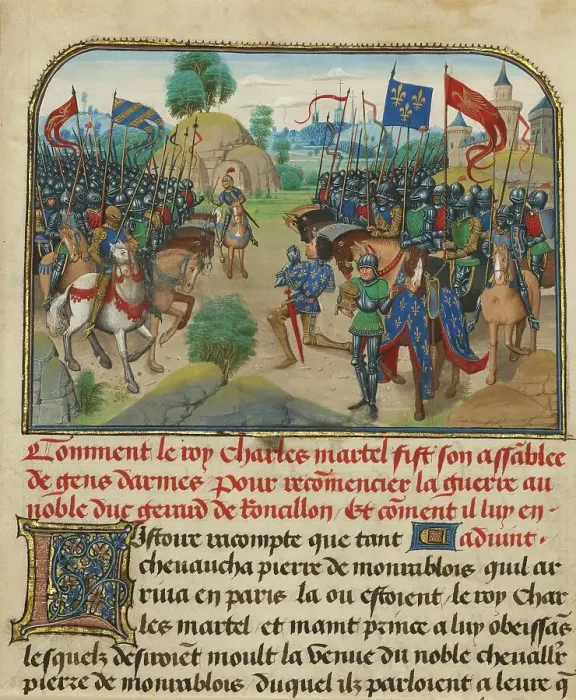 Comment le roy charles martel fist son assãblee
de gens darmes pour recõmencier la guerre au
noble duc gerard de Roncillon / Et cõment il luy en-
aduint.
L istoire racompte que tant
cheuaucha pierre de monrablois quil ar
riua en paris la ou estoient le roy Char
les martel et maint prince a luy obeissãs
lesquelz desiroiẽt moult la venue du noble cheualier
pierre de monrablois duquel ilz parloient a leure q̃